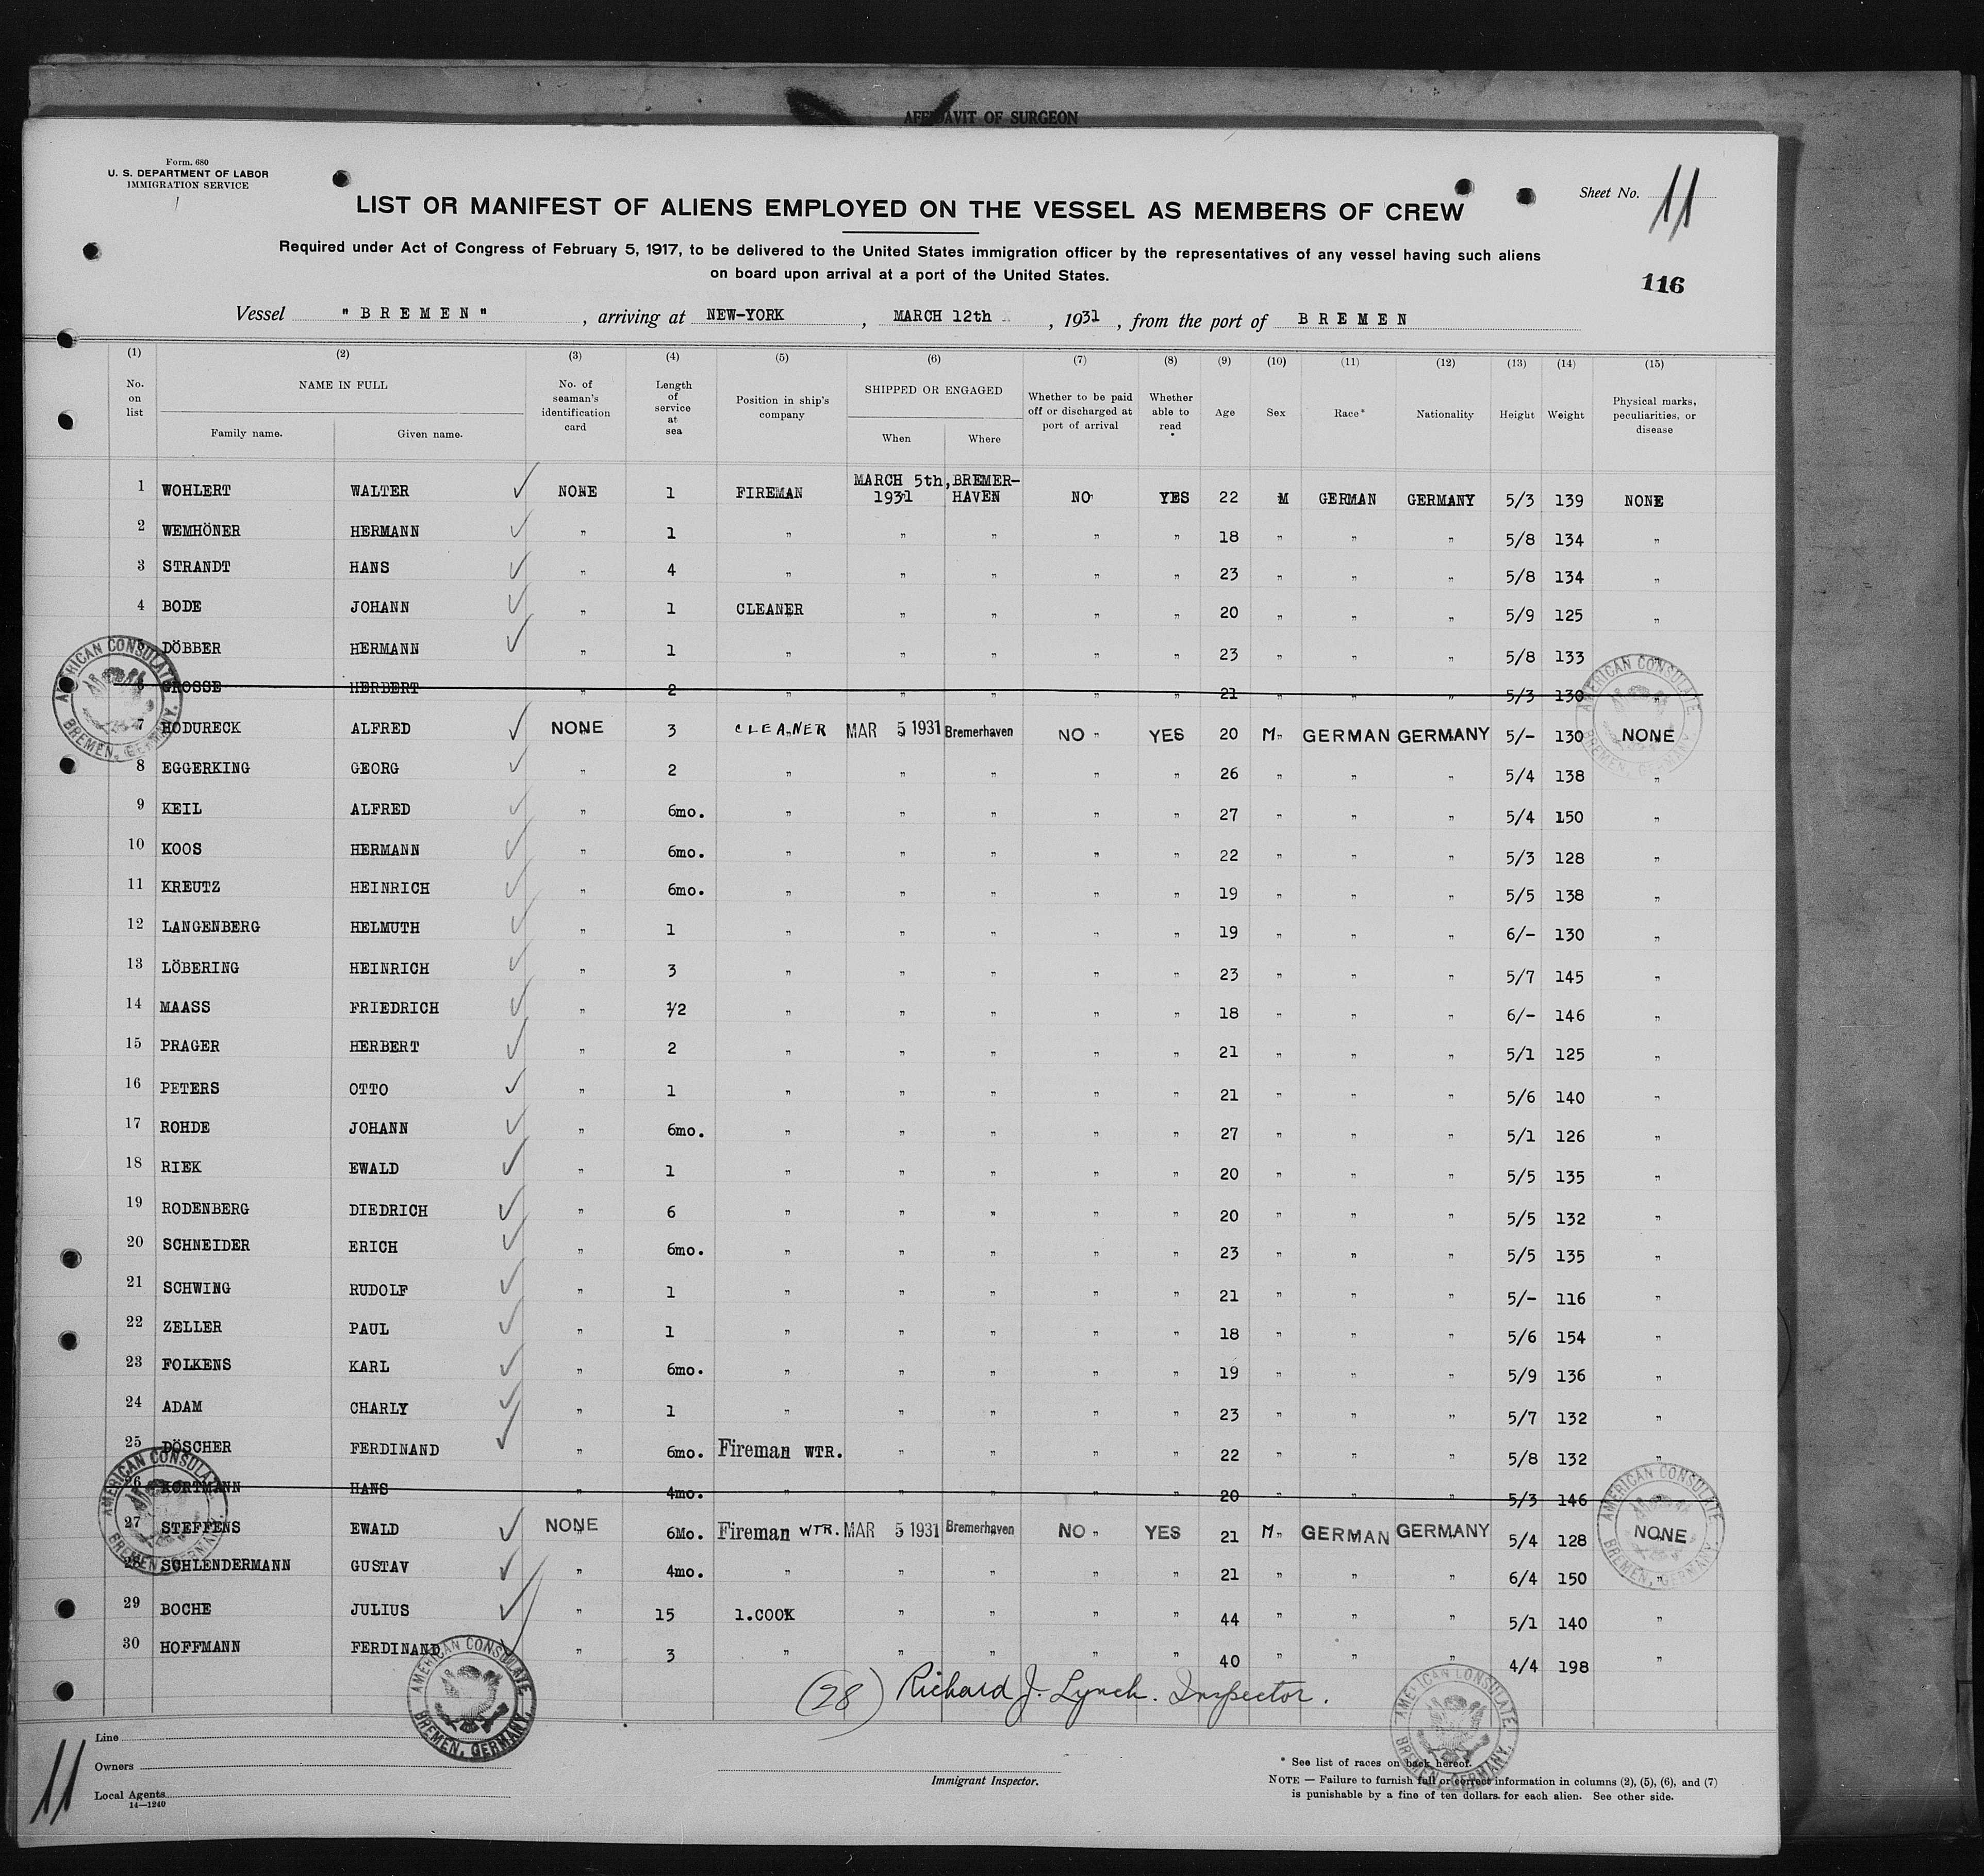 AFFIDAVIT OF SURGEON
Form. 680
U. S. DEPARTMENT OF LABOR
IMMIGRATION SERVICE
Sheet No. 11
LIST OR MANIFEST OF ALIENS EMPLOYED ON THE VESSEL AS MEMBERS OF CREW
Required under Act of Congress of February 5, 1917, to be delivered to the United States immigration officer by the representatives of any vessel having such aliens
on board upon arrival at a port of the United States.
116
Vessel "BREMEN", arriving at NEW-YORK, MARCH 12th, 1931, from the port of BREMEN
(1) (2) (3) (4) (5) (6) (7) (8) (9) (10) (11) (12) (13) (14) (15)
No. on list NAME IN FULL Family name. Given name. No. of seaman's identification card Length of service at sea Position in ship's company SHIPPED OR ENGAGED When Where Whether to be paid off or discharged at port of arrival Whether able to read * Age Sex Race* Nationality Height Weight Physical marks, peculiarities, or disease
1 WOHLERT WALTER ✓ NONE 1 FIREMAN MARCH 5th, 1931 BREMER-HAVEN NO YES 22 M GERMAN GERMANY 5/3 139 NONE
2 WEMHÖNER HERMANN ✓ " 1 " " " " " 18 " " " 5/8 134 "
3 STRANDT HANS ✓ " 4 " " " " " 23 " " " 5/8 134 "
4 BODE JOHANN ✓ " 1 CLEANER " " " " 20 " " " 5/9 125 "
5 DÖBBER HERMANN ✓ " 1 " " " " " 23 " " " 5/8 133 "
6 GROSSE HERBERT " 2 " " " " " 21 " " " 5/3 130
7 HODURECK ALFRED ✓ NONE 3 CLEANER MAR 5 1931 Bremerhaven NO " YES 20 M" GERMAN GERMANY 5/- 130 NONE
8 EGGERKING GEORG ✓ " 2 " " " " " 26 " " " 5/4 138 "
9 KEIL ALFRED ✓ " 6mo. " " " " " 27 " " " 5/4 150 "
10 KOOS HERMANN ✓ " 6mo. " " " " " 22 " " " 5/3 128 "
11 KREUTZ HEINRICH ✓ " 6mo. " " " " " 19 " " " 5/5 138 "
12 LANGENBERG HELMUTH ✓ " 1 " " " " " 19 " " " 6/- 130 "
13 LÖBERING HEINRICH ✓ " 3 " " " " " 23 " " " 5/7 145 "
14 MAASS FRIEDRICH ✓ " 1/2 " " " " " 18 " " " 6/- 146 "
15 PRAGER HERBERT ✓ " 2 " " " " " 21 " " " 5/1 125 "
16 PETERS OTTO ✓ " 1 " " " " " 21 " " " 5/6 140 "
17 ROHDE JOHANN ✓ " 6mo. " " " " " 27 " " " 5/1 126 "
18 RIEK EWALD ✓ " 1 " " " " " 20 " " " 5/5 135 "
19 RODENBERG DIEDRICH ✓ " 6 " " " " " 20 " " " 5/5 132 "
20 SCHNEIDER ERICH ✓ " 6mo. " " " " " 23 " " " 5/5 135 "
21 SCHWING RUDOLF ✓ " 1 " " " " " 21 " " " 5/- 116 "
22 ZELLER PAUL ✓ " 1 " " " " " 18 " " " 5/6 154 "
23 FOLKENS KARL ✓ " 6mo. " " " " " 19 " " " 5/9 136 "
24 ADAM CHARLY ✓ " 1 " " " " " 23 " " " 5/7 132 "
25 DÖSCHER FERDINAND ✓ " 6mo. Fireman WTR. " " " " 22 " " " 5/8 132 "
26 KORTMANN HANS " 4mo. " " " " " 20 " " " 5/3 146 "
27 STEFFENS EWALD ✓ NONE 6Mo. Fireman WTR. MAR 5 1931 Bremerhaven NO " YES 21 M" GERMAN GERMANY 5/4 128 NONE
28 SCHLENDERMANN GUSTAV ✓ " 4mo. " " " " " 21 " " " 6/4 150 "
29 BOCHE JULIUS ✓ " 15 1.COOK " " " " 44 " " " 5/1 140 "
30 HOFFMANN FERDINAND ✓ " 3 " " " " " 40 " " " 4/4 198 "
AMERICAN CONSULATE BREMEN, GERMANY.
AMERICAN CONSULATE BREMEN, GERMANY.
AMERICAN CONSULATE BREMEN, GERMANY.
AMERICAN CONSULATE BREMEN, GERMANY.
AMERICAN CONSULATE BREMEN, GERMANY.
AMERICAN CONSULATE BREMEN, GERMANY.
(28) Richard J. Lynch. Inspector.
11
Line
Owners
Local Agents
14—1240
Immigrant Inspector.
* See list of races on back hereof.
NOTE — Failure to furnish full or correct information in columns (2), (5), (6), and (7)
is punishable by a fine of ten dollars for each alien. See other side.